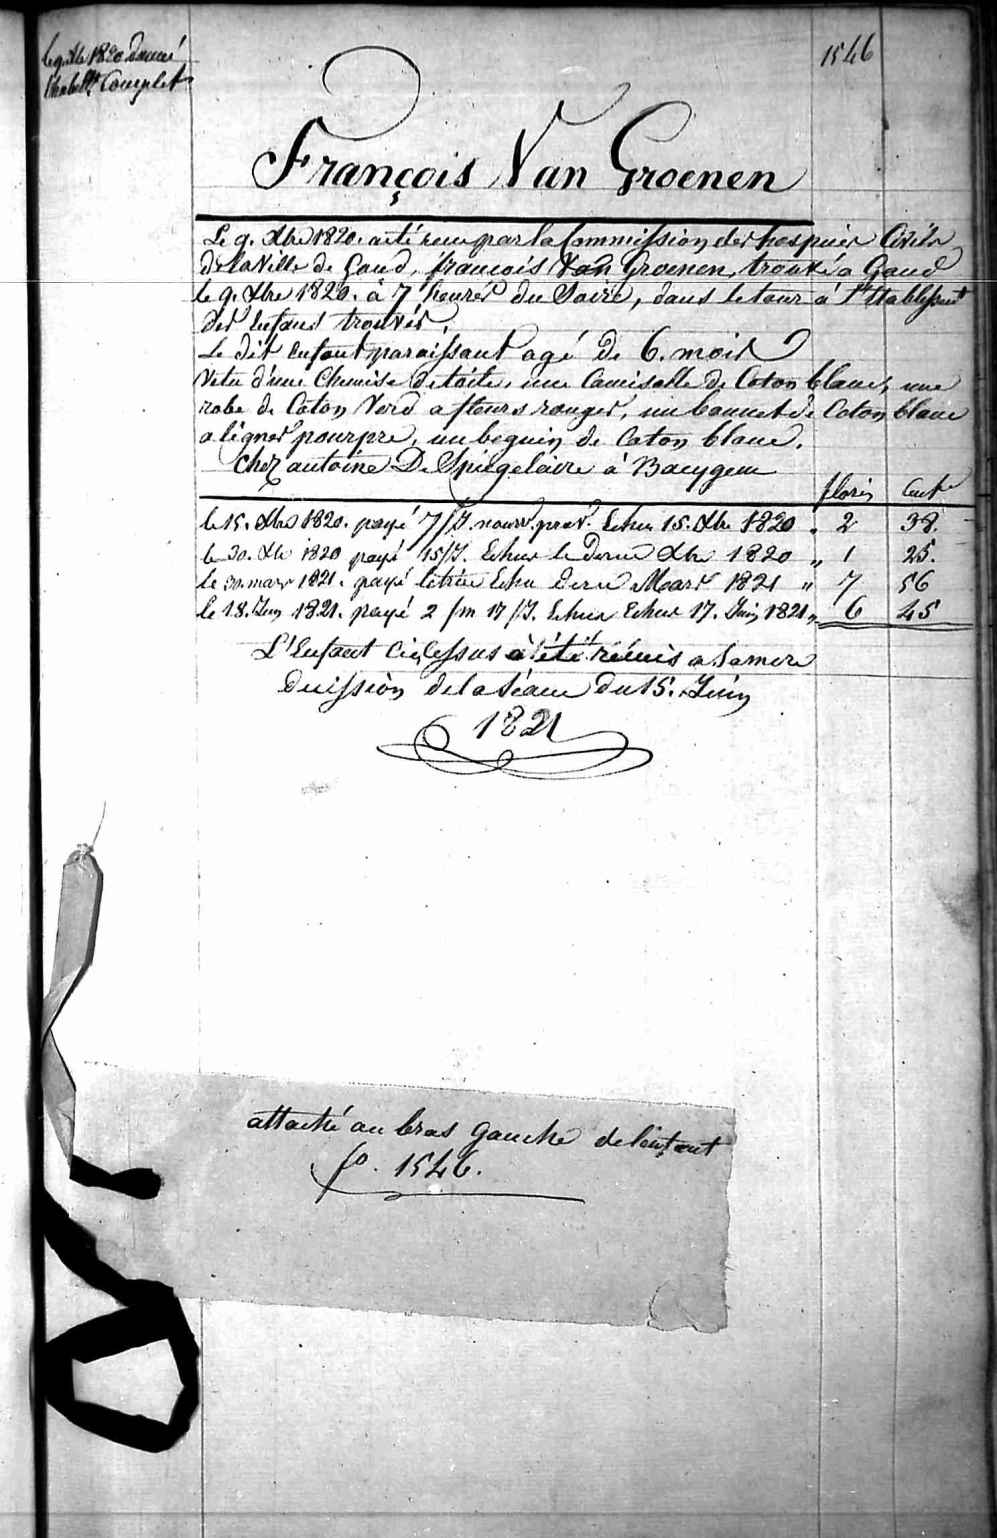 le 9. Xbre 1820 donné
1 habillt Complet
1546
François Van Groenen
Le 9. Xbre 1820. a été recu par la Commission des hospices Civils
de la Ville de Gand, francois Van Groenen, trouvé a Gand
le 9. Xbre 1820. à 7 heures du Soire, dans le tour à l'Etablissemt
des Enfans trouvés.
Le dit Enfant paraissant agé de 6. mois
Vetu d'une Chemise de toile, une Camisolle de Coton blanc, une
robe de Coton Verd a fleurs rouges, un bonnet de Coton blanc
a lignes pourpre, un beguin de Coton blanc.
Chez antoine De Spiegelaire à Baeygem
floris Cents
le 15. Xbre 1820. payé 7/J. nourr. prov. Echu 15. Xbre 1820 „ 2 38.
le 30. Xbre 1820 payé 15/J. Echus le Dernr Xbre 1820 „ 1 25.
le 31. mars 1821. payé letrim Echu Dernr Mars 1821 „ 7 56
le 18. Juin 1821. payé 2 /m 17 /J. Echus Echus 17. Juin 1821 „ 6 45
L'Enfant Ci dessus a été rémis a Samere
Decission de la Séance du 15. Juin
1821
attaché au bras gauche de lenfant
fo. 1546.